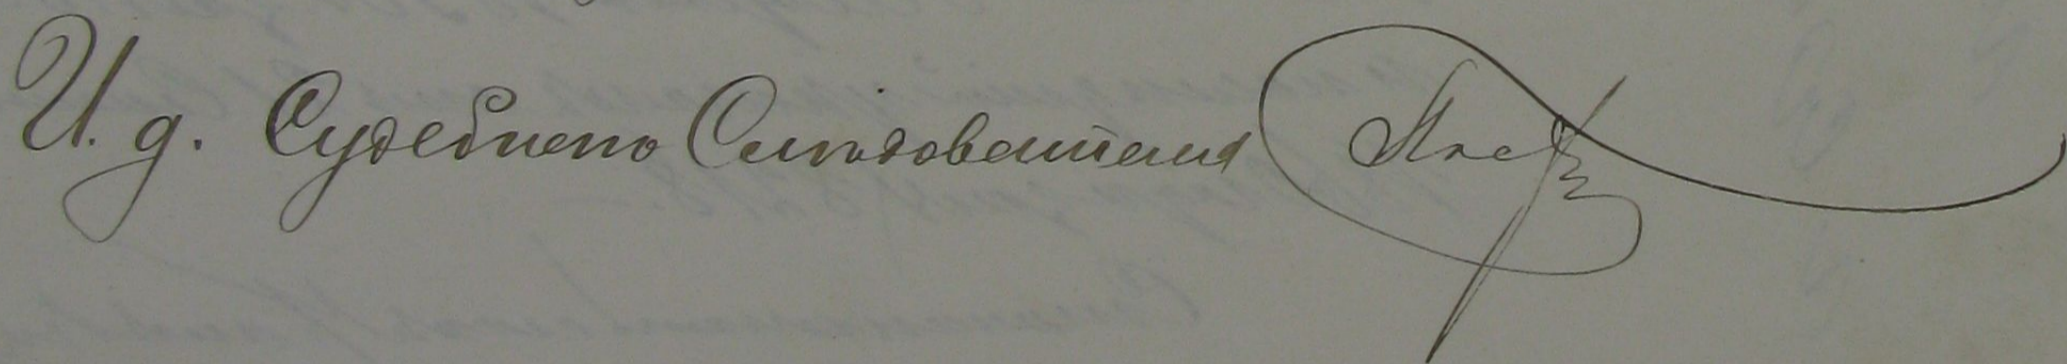 И. д. Судебнаго Следователя